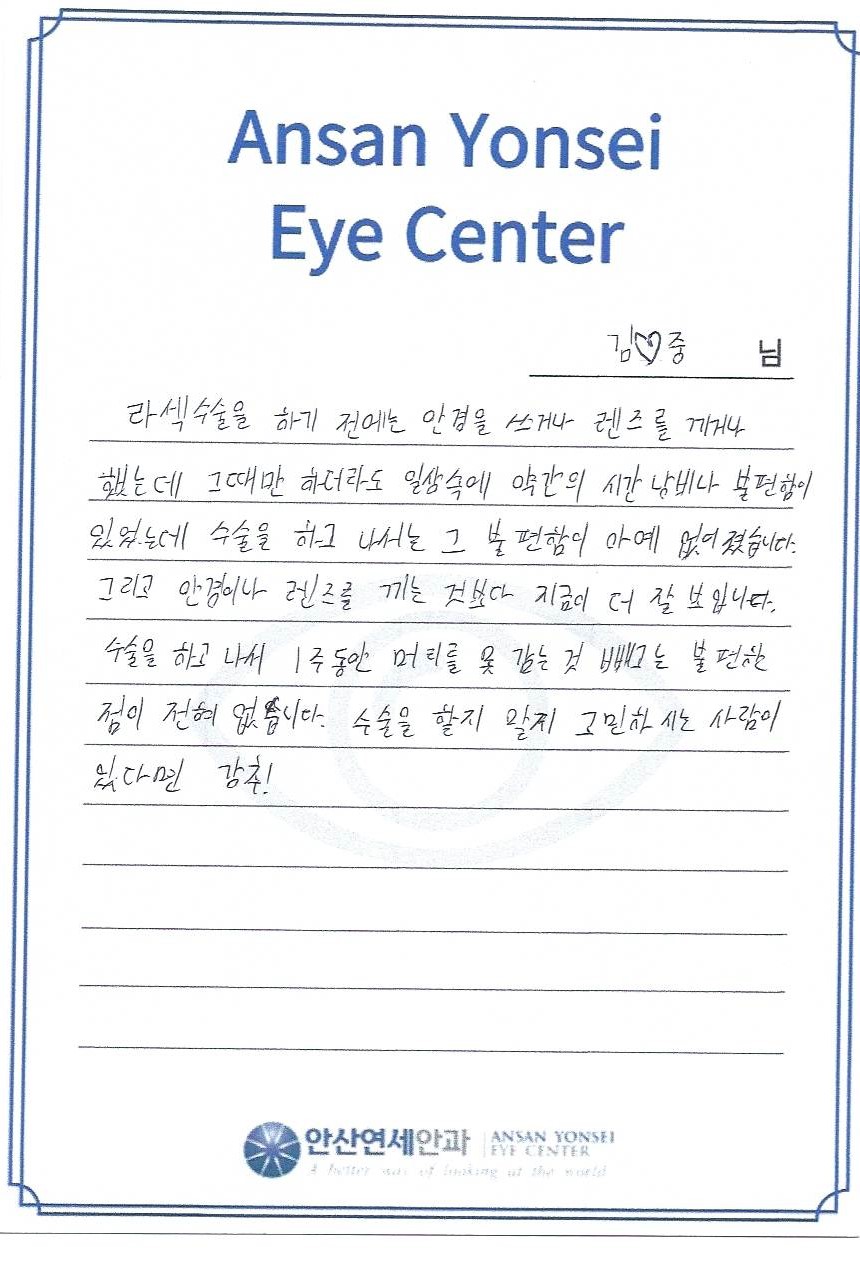 Ansan Yonsei
Eye Center
김♡중 님
라섹수술을 하기 전에는 안경을 쓰거나 렌즈를 끼거나
했는데 그때만 하더라도 일상속에 약간의 시간 낭비나 불편함이
있었는데 수술을 하고 나서는 그 불편함이 아예 없어졌습니다.
그리고 안경이나 렌즈를 끼는 것보다 지금이 더 잘 보입니다.
수술을 하고 나서 1주동안 머리를 못 감는 것 빼고는 불편한
점이 전혀 없습니다. 수술을 할지 말지 고민하시는 사람이
있다면 강추!
안산연세안과 ANSAN YONSEI
EYE CENTER
A better way of looking at the world